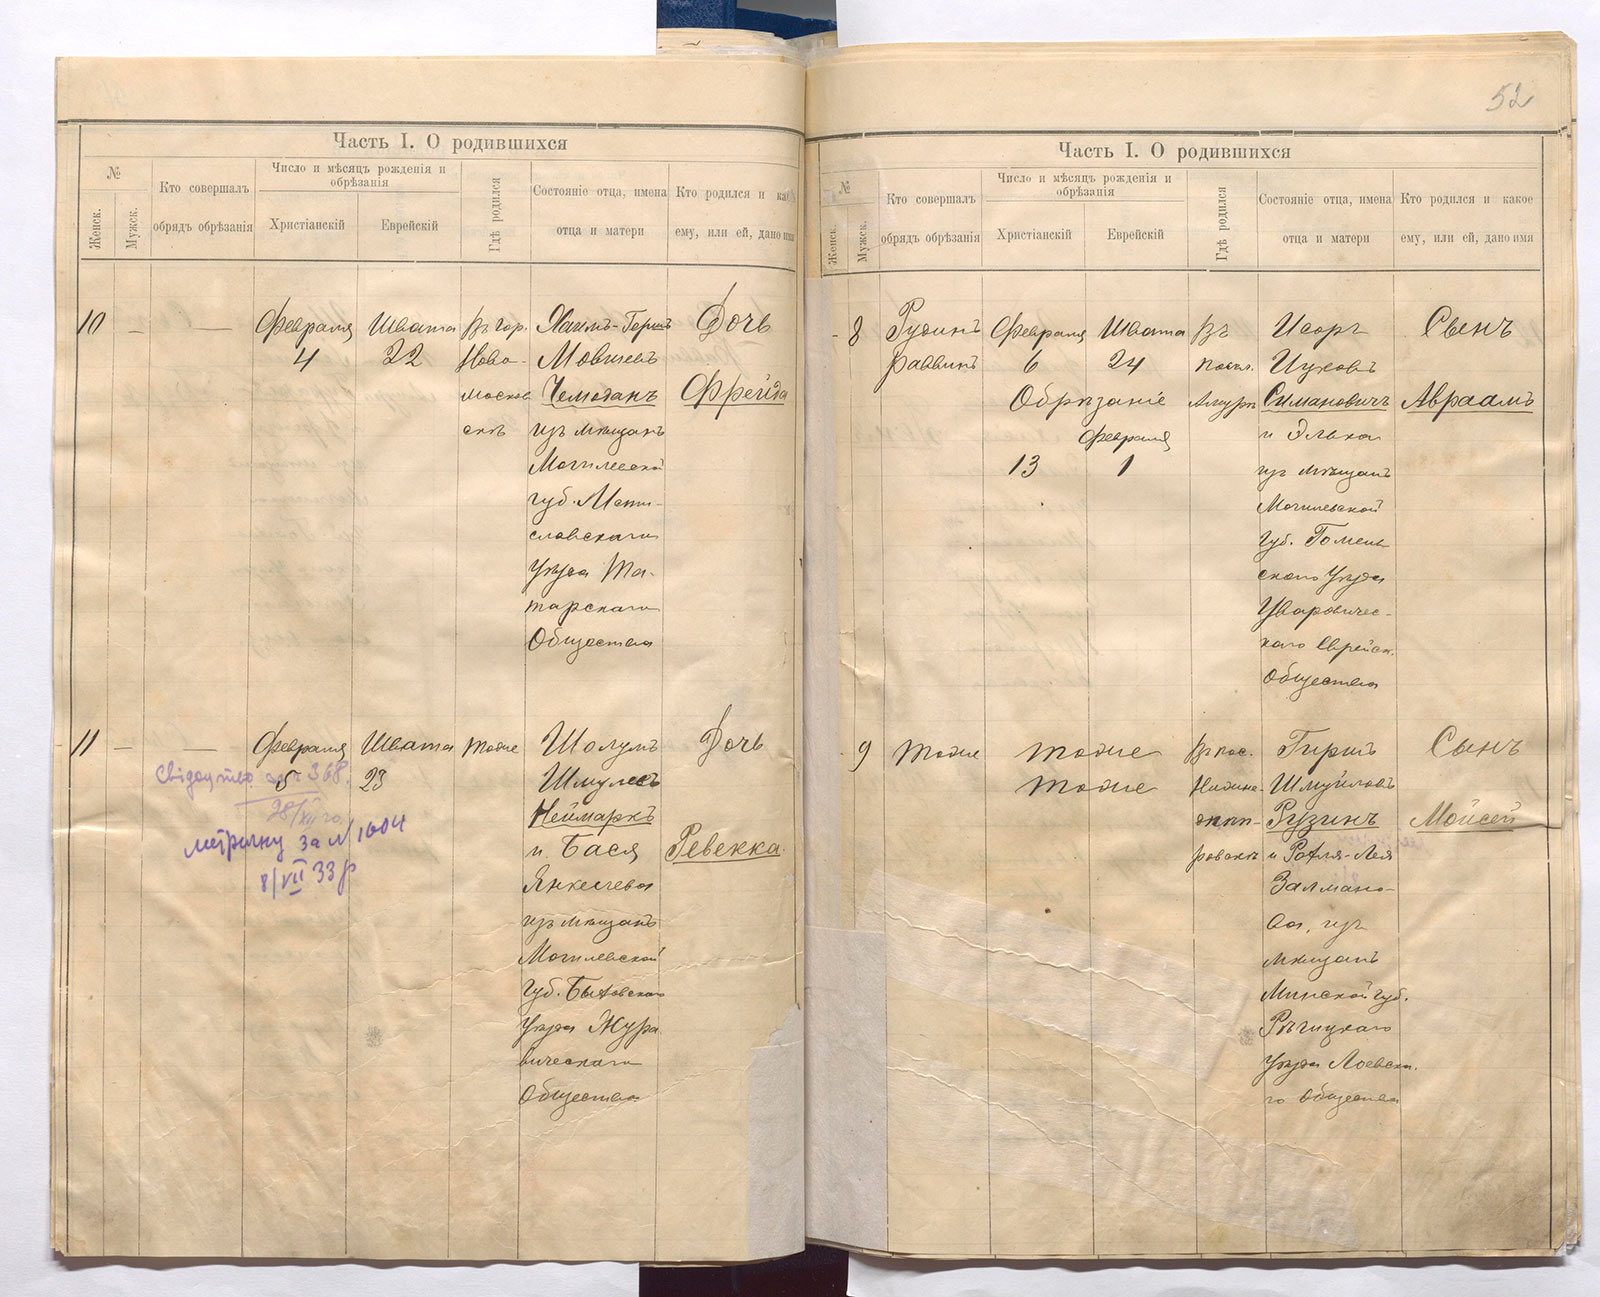 Часть I. О родившихся
№
Женск.
Мужск.
Кто совершалъ
обрядъ обрѣзанія
Число и мѣсяцъ рожденія и
обрѣзанія
Христіанскій
Еврейскій
Гдѣ родился
Состояніе отца, имена
отца и матери
Кто родился и как
ему, или ей, дано имя
10
—
—
Февраля
4
Швата
22
Въ гор.
Ново-
москов
скѣ
Хаимъ-Гершъ
Мовшевъ
Чемоданъ
изъ мѣщанъ
Могилевской
губ. Мсти-
славскаго
уѣзда Та-
тарскаго
Общества
Дочь
Фрейда
11
—
—
Февраля
5
Швата
23
тоже
Шолумъ
Шмулевъ
Неймаркъ
и Бася
Янкелева
изъ мѣщанъ
Могилевской
губ. Быховскаго
уѣзда Жура
вическаго
Общества
Дочь
Ревекка
Свідоцтво за № 368.
28/XII
метрику за № 1604
8/VII 33 р
52
Часть I. О родившихся
№
Женск.
Мужск.
Кто совершалъ
обрядъ обрѣзанія
Число и мѣсяцъ рожденія и
обрѣзанія
Христіанскій
Еврейскій
Гдѣ родился
Состояніе отца, имена
отца и матери
Кто родился и какое
ему, или ей, дано имя
8
Рудинъ
раввинъ
Февраля
6
Швата
24
Обрѣзаніе
Февраля
13
1
Въ
посел.
Амурѣ
Исоръ
Ицковъ
Симановичъ
и Элька
изъ мѣщанъ
Могилевской
губ. Гомель
скаго уѣзда
Уваровичес-
каго Еврейск.
Общества
Сынъ
Авраамъ
9
тоже
тоже
тоже
Въ пос.
Нижне-
днѣп-
ровскѣ
Гиршъ
Шмуйловъ
Рузинъ
и Рахля-Лея
Залмано-
ва, изъ
мѣщанъ
Минской губ.
Рѣчицкаго
уѣзда Лоевска
го Общества
Сынъ
Мойсей